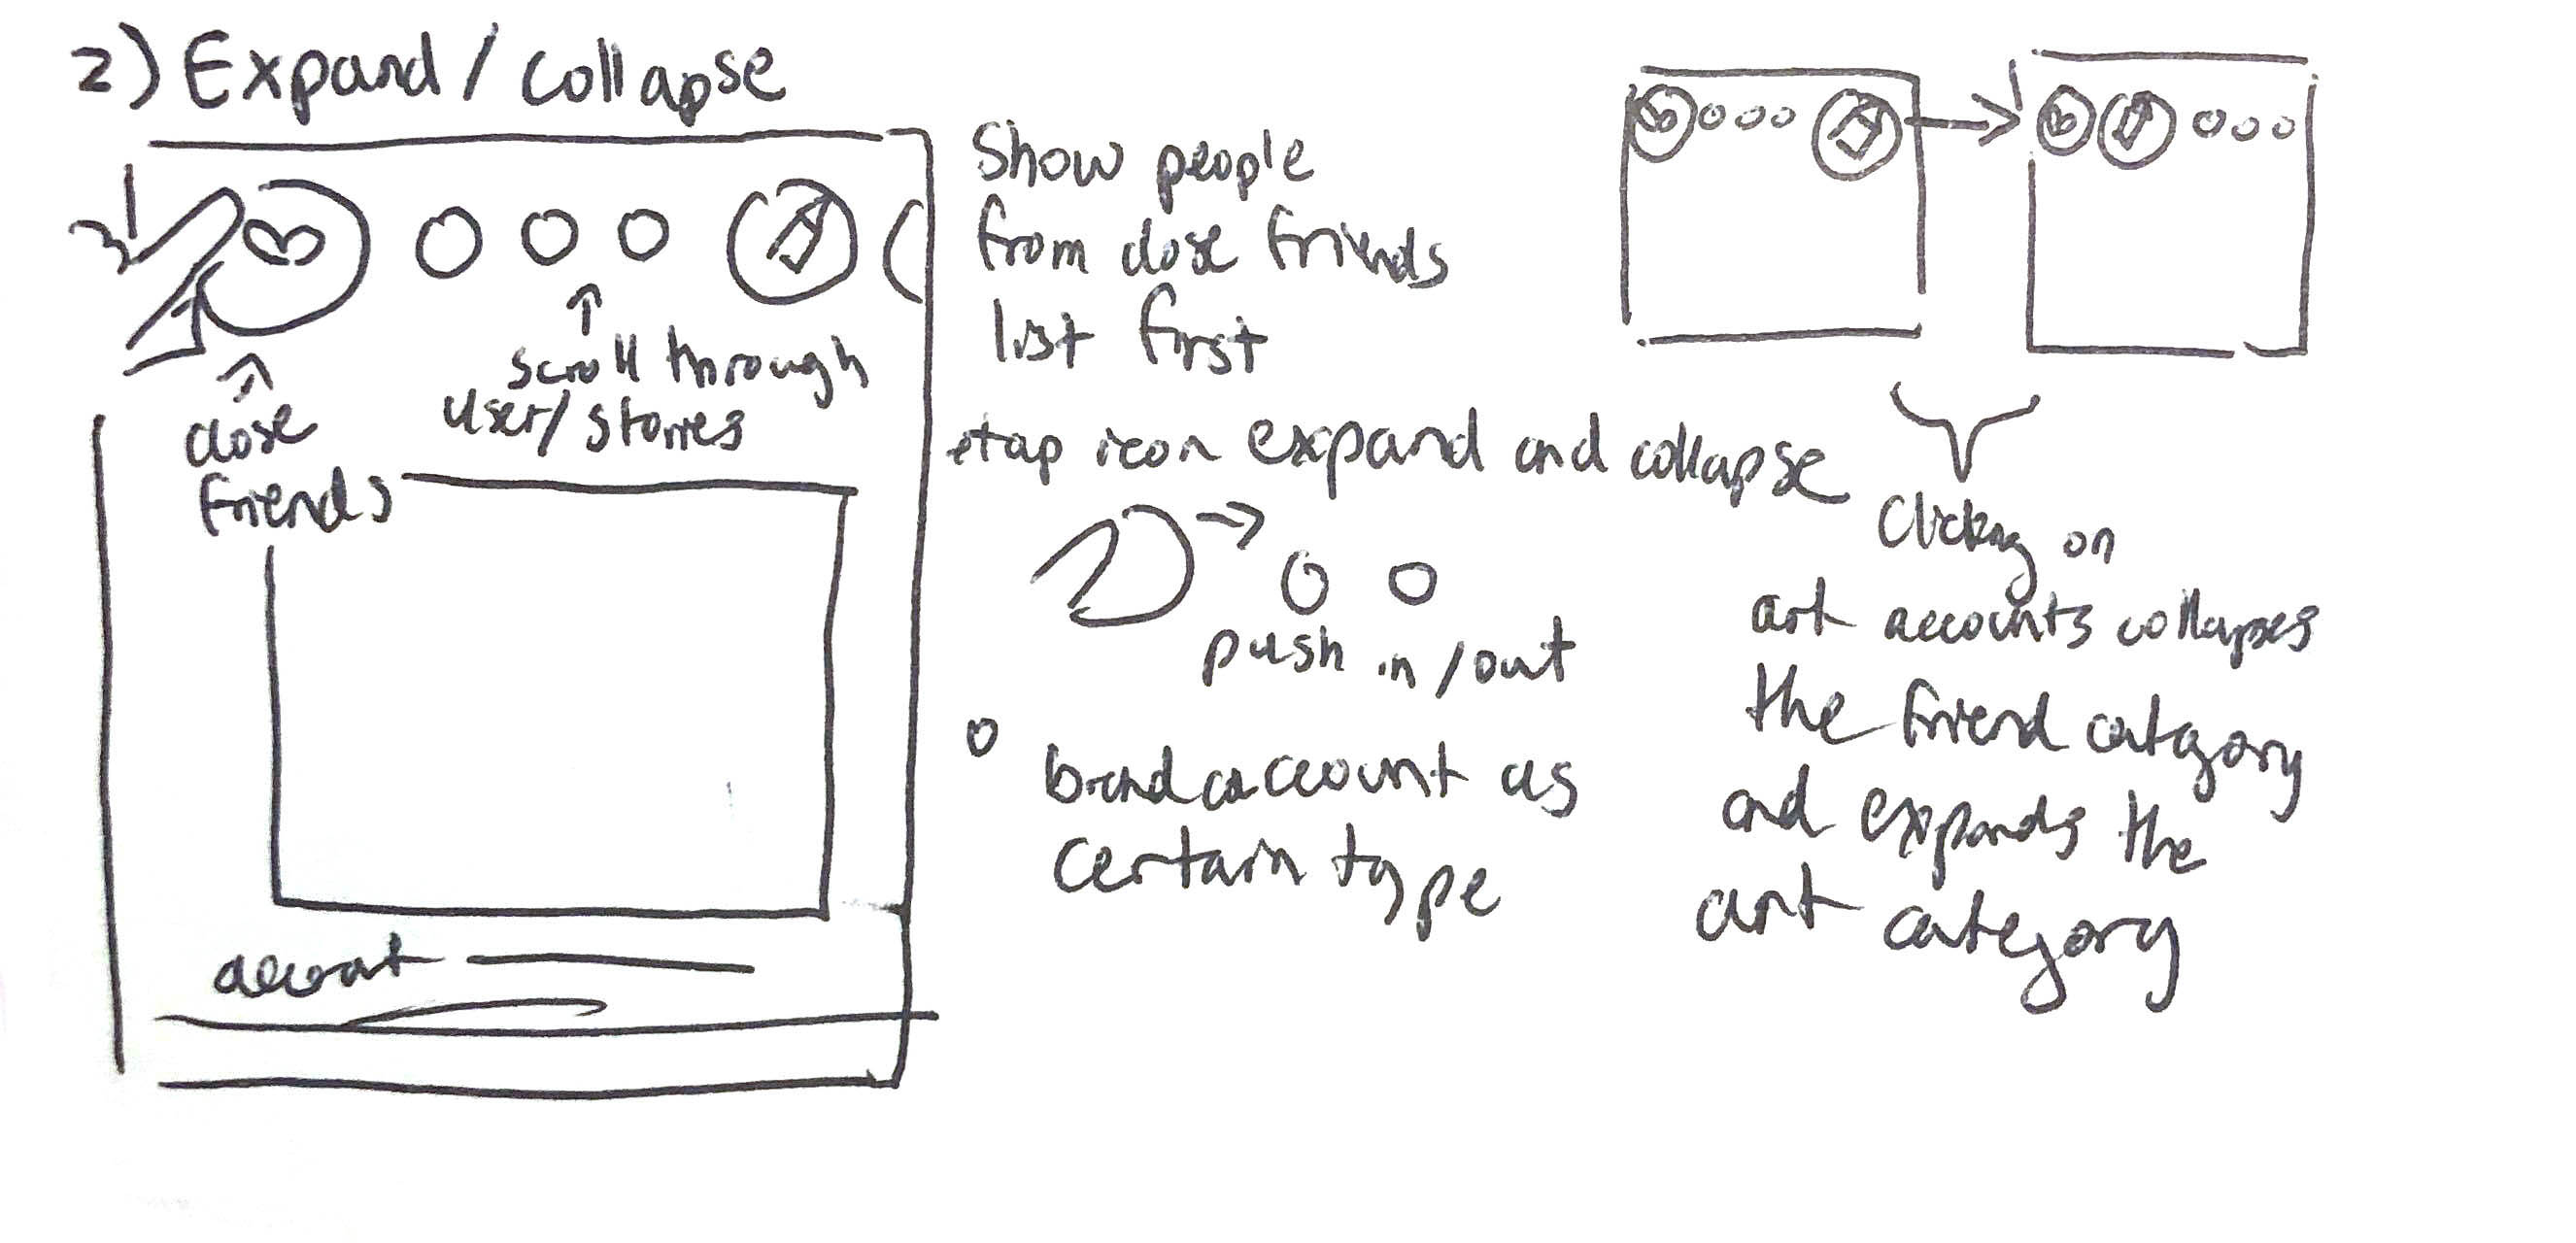 2) Expand / Collapse
close
friends
scroll through
user/stories
account
Show people
from close friends
list first
tap icon expand and collapse
push in/out
account as
certain type
Clicking on
art accounts collapses
the friend category
and expands the
art category